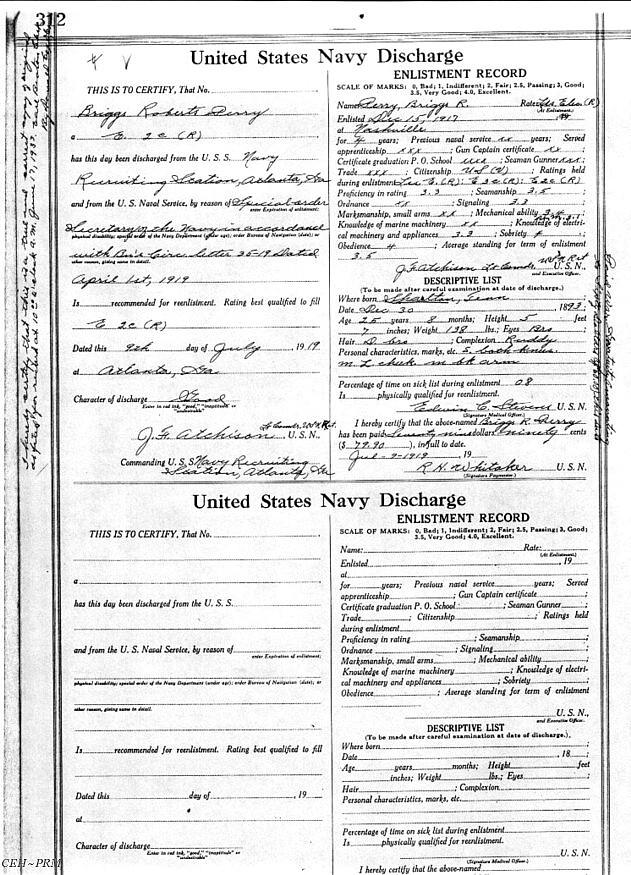 312
United States Navy Discharge
THIS IS TO CERTIFY, That No.
Briggs Roberts Perry
a E 2c (R)
has this day been discharged from the U. S. S. Navy
Recruiting Station, Atlanta, Ga
and from the U. S. Naval Service, by reason of Special order
order Expiration of enlistment;
Secretary of the Navy in accordance
physical disability; special order of the Navy Department (under age); order Bureau of Navigation (date); or
with Bu's Circ. Letter 35-19 Dated
other reason, giving same in detail.
April 1st, 1919
Is recommended for reenlistment. Rating best qualified to fill
E 2c (R)
Dated this 9th day of July, 1919
at Atlanta, Ga
Character of discharge Good
Enter in red ink, "good," "inaptitude" or
"undesirable"
J. F. Atchison Lt Comdr, U.S.N. Ret.
U. S. N.,
Commanding U. S. S. Navy Recruiting
Station, Atlanta, Ga
ENLISTMENT RECORD
SCALE OF MARKS: 0, Bad; 1, Indifferent; 2, Fair; 2.5, Passing; 3, Good;
3.5, Very Good; 4.0, Excellent.
Name Perry, Briggs R. Rate: Elec. (R)
(At Enlistment.)
Enlisted Dec 15, 1917
at Nashville
for 4 years; Previous naval service xx years; Served
apprenticeship xxx; Gun Captain certificate xx
Certificate graduation P. O. School xxx; Seaman Gunner xxx;
Trade xxx; Citizenship US (N) Ratings held
during enlistment E. (R); E 3c (R); E2c (R)
Proficiency in rating 3.3 Seamanship 3.5
Ordnance xx; Signaling 3.3
Marksmanship, small arms xx; Mechanical ability 3.4
Knowledge of marine machinery xx; Knowledge of electri-
cal machinery and appliances 3.3 Sobriety 4
Obedience 4; Average standing for term of enlistment
3.5
J. F. Atchison Lt Comdr, U.S.N. Ret
U. S. N.,
and Executive Officer.
DESCRIPTIVE LIST
(To be made after careful examination at date of discharge.)
Where born Charlton, Tenn
Date Dec 30 1893;
Age 25 years 8 months; Height 5 feet
7 inches; Weight 138 lbs.; Eyes Bro
Hair D bro; Complexion Ruddy
Personal characteristics, marks, etc. S. both knees
m L cheek m bk arm
Percentage of time on sick list during enlistment 08
Is physically qualified for reenlistment.
Edwin C. Stevens U. S. N.
(Signature Medical Officer.)
I hereby certify that the above-named Briggs R. Perry
has been paid seventy nine dollars ninety cents
($ 79.90 ), in full to date.
Jul - 9 - 1919, 19
R H Whitaker U. S. N.
(Signature Paymaster.)
United States Navy Discharge
THIS IS TO CERTIFY, That No.
a
has this day been discharged from the U. S. S.
and from the U. S. Naval Service, by reason of
order Expiration of enlistment;
physical disability; special order of the Navy Department (under age); order Bureau of Navigation (date); or
other reason, giving same in detail.
Is recommended for reenlistment. Rating best qualified to fill
Dated this day of , 19
at
Character of discharge
Enter in red ink, "good," "inaptitude" or
"undesirable"
ENLISTMENT RECORD
SCALE OF MARKS: 0, Bad; 1, Indifferent; 2, Fair; 2.5, Passing; 3, Good;
3.5, Very Good; 4.0, Excellent.
Name: Rate:
(At Enlistment.)
Enlisted , 19
at
for years; Previous naval service years; Served
apprenticeship ; Gun Captain certificate
Certificate graduation P. O. School ; Seaman Gunner ;
Trade ; Citizenship ; Ratings held
during enlistment
Proficiency in rating ; Seamanship ;
Ordnance ; Signaling ;
Marksmanship, small arms ; Mechanical ability ;
Knowledge of marine machinery ; Knowledge of electri-
cal machinery and appliances ; Sobriety ;
Obedience ; Average standing for term of enlistment
U. S. N.,
and Executive Officer.
DESCRIPTIVE LIST
(To be made after careful examination at date of discharge.)
Where born ;
Date , 18 ;
Age years months; Height feet
inches; Weight lbs.; Eyes ;
Hair ; Complexion
Personal characteristics, marks, etc.
Percentage of time on sick list during enlistment
Is physically qualified for reenlistment.
U. S. N.
(Signature Medical Officer.)
I hereby certify that the above-named
CEH~PRM